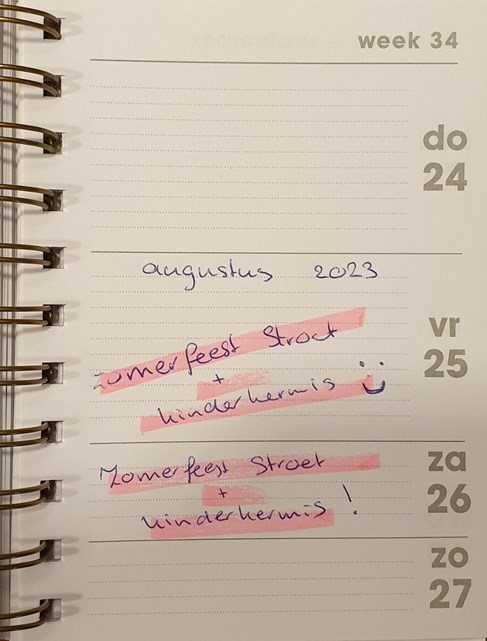 week 34
do
24
augustus 2023
vr
25
Zomerfeest Stroet
+
kinderkermis
za
26
Zomerfeest Stroet
+
kinderkermis !
zo
27